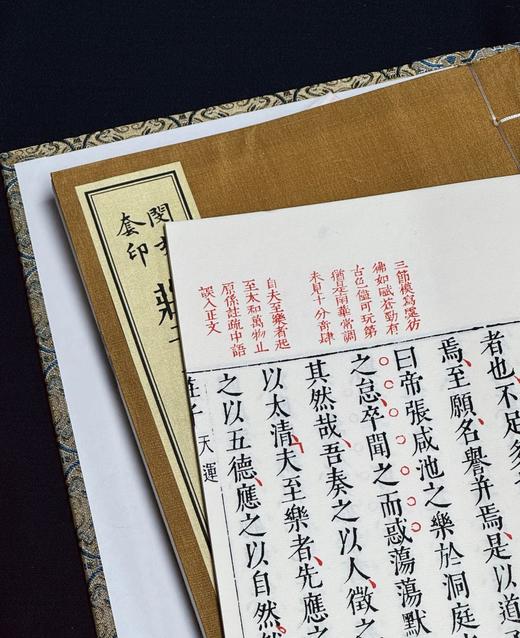 者也不足
焉至願名譽并焉是以道
曰帝張咸池之樂於洞庭
之怠卒聞之而惑蕩蕩默
其然哉吾奏之以人徵之
以太清夫至樂者先應之
之以五德應之以自然
三節模寫處彷
彿如賦蒼勁有
古色儘可玩第
猶是南華常調
未見十分奇肆
自夫至樂者起
至太和萬物止
原係註疏中語
誤入正文
莊子 天運
閔
套印
莊